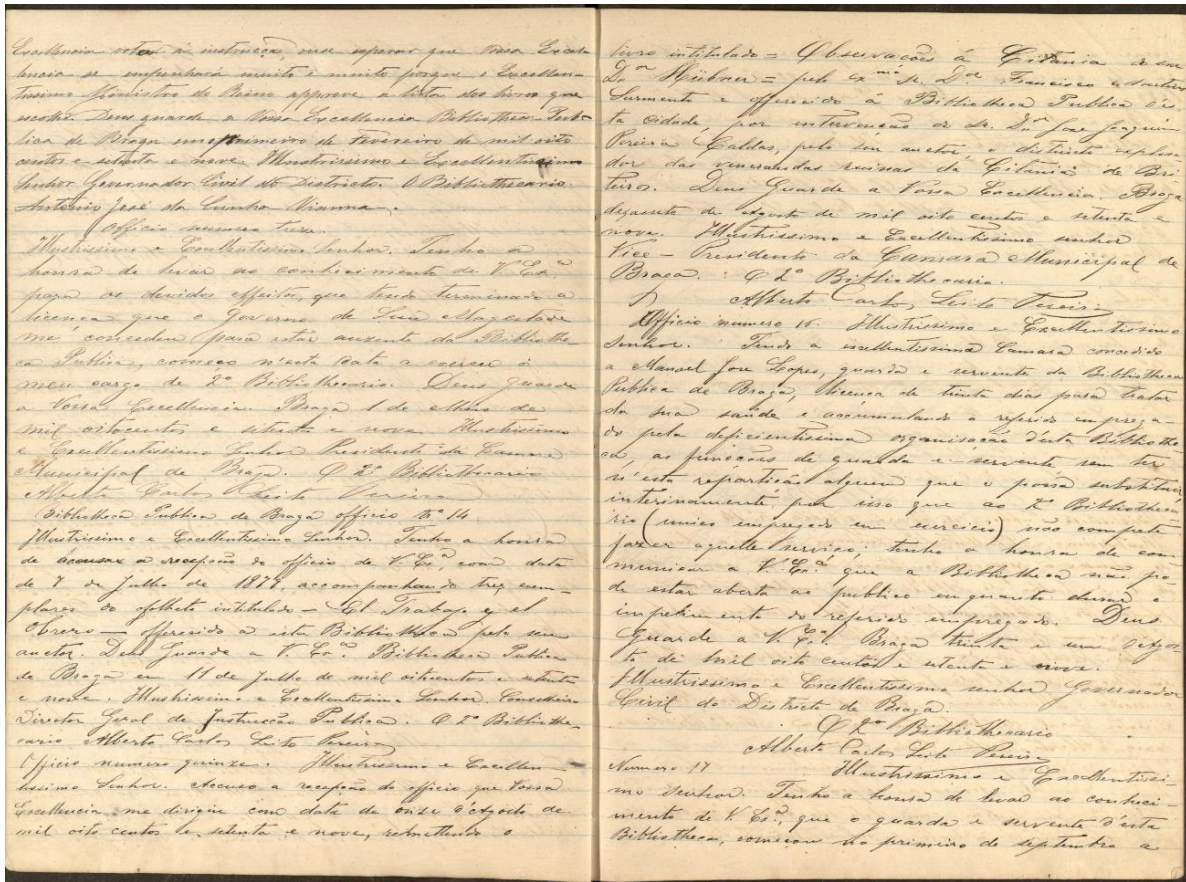 Excellencia vota á instrucção, ouso esperar que Vossa Excel-
lencia se empenhará muito e muito porque o Excellen-
tissimo Ministro do Reino approve a lista dos livros que
escolhi. Deus guarde a Vossa Excellencia Bibliotheca Pub-
lica de Braga em primeiro de Fevereiro de mil oito
centos e setenta e nove. Illustrissimo e Excellentissimo
Senhor Governador Civil do Districto. O Bibliothecario.
Antonio José da Cunha Vianna.
Officio numero treze.
Illustrissimo e Excellentissimo Senhor. Tenho a
honra de levar ao conhecimento de V. Exª
para os devidos effeitos, que tendo terminado a
licença que o Governo de Sua Magestade
me concedeu para estar auzente da Bibliothe-
ca Publica, começo n'esta data a exercer o
meu cargo de 2º Bibliothecario. Deus Guarde
a Vossa Excellencia. Braga 1 de Maio de
mil oitocentos e setenta e nove. Illustrissimo
e Excellentissimo Senhor Presidente da Camara
Municipal de Braga. O 2º Bibliothecario
Alberto Carlos Leite Pereira
Bibliotheca Publica de Braga officio Nº 14.
Illustrissimo e Excellentissimo Senhor. Tenho a honra
de accusar a recepção do officio de V. Exª, com data
de 7 de Julho de 1879, accompanhando tres exem-
plares do folheto intitulado — El Trabajo y el
Obrero — offerecido a esta Bibliotheca pelo seu
auctor. Deus Guarde a V. Exª. Bibliotheca Publica
de Braga em 11 de Julho de mil oitocentos e setenta
e nove. Illustrissimo e Excellentissimo Senhor Conselheiro
Director Geral de Instrucção Publica. O 2º Bibliothe-
cario Alberto Carlos Leite Pereira
Officio numero quinze. Illustrissimo e Excellen-
tissimo Senhor. Accuso a recepção do officio que Vossa
Excellencia me dirigiu com data de onze d'Agosto de
mil oito centos e setenta e nove, remettendo o
livro intitulado = Observações á Citania do snr
Dor Hübner = pelo exmo Sr. Dor Francisco Martins
Sarmento e offerecido á Bibliotheca Publica d'es-
ta cidade, por intervenção do Sr. Dor José Joaquim
Pereira Caldas, pelo seu auctor, o distincto explora-
dor das venerandas ruinas da Citania de Bri-
teiros. Deus Guarde a Vossa Excellencia Braga
dezasete de Agosto de mil oito centos e setenta e
nove. Illustrissimo e Excellentissimo senhor
Vice-Presidente da Camara Municipal de
Braga. O 2º Bibliothecario.
Alberto Carlos Leite Pereira
Officio numero 16. Illustrissimo e Excellentissimo
Senhor. Tendo a excellentissima Camara concedido
a Manoel Jose Lopes, guarda e servente da Bibliotheca
Publica de Braga, licença de trinta dias para tratar
da sua saúde e accumulando o referido emprega-
do pela deficientissima organisação d'esta Bibliothe-
ca, as funcções de guarda e servente, sem ter
n'esta repartição alguem que o possa substituir
interinamente, por isso que ao 2º Bibliotheca-
rio (unico empregado em exercicio) não compete
fazer aquelle serviço: tenho a honra de com-
municar a V. Exª. que a Bibliotheca não pó-
de estar aberta ao publico enquanto durar o
impedimento do referido empregado. Deus
Guarde a V. Exª. Braga trinta e um d'Agos-
to de mil oito centos e setenta e nove.
Illustrissimo e Excellentissimo senhor Governador
Civil do Districto de Braga.
O 2º Bibliothecario
Alberto Carlos Leite Pereira
Numero 17 Illustrissimo e Excellentissi-
mo Senhor. Tenho a honra de levar ao conheci-
mento de V. Exª, que o guarda e servente d'esta
Bibliotheca, começou no primeiro de septembro a